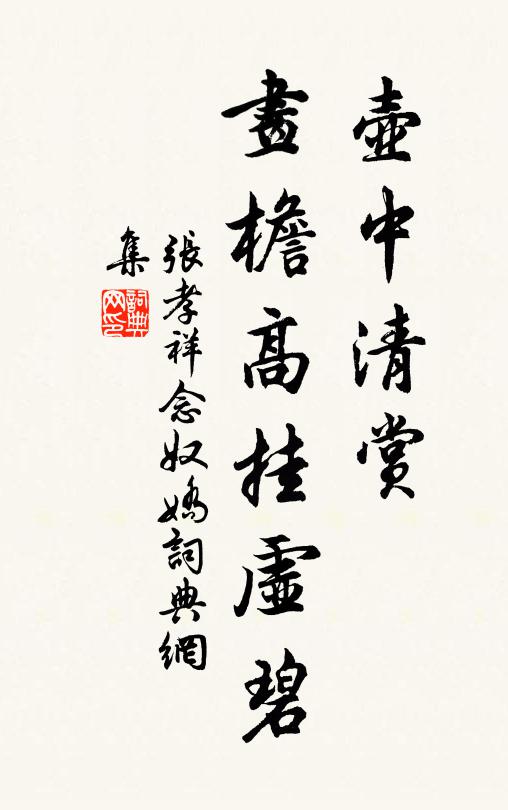 壺中清賞
畫檐高挂虛碧
張孝祥念奴嬌詞典網
集
詞典网印